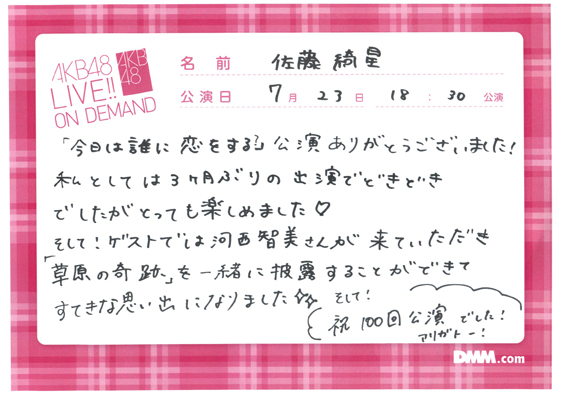 AKB48
LIVE!!
ON DEMAND
AKB
48
名前 佐藤綺星
公演日 7月23日 18:30 公演
「今日は誰に恋をする」公演ありがとうございました!
私としては3ヶ月ぶりの出演でどきどき
でしたがとっても楽しめました♡
そして!ゲストでは河西智美さんが来ていただき
「草原の奇跡」を一緒に披露することができて
すてきな思い出になりました☆☆
そして!
祝100回公演でした!
アリガトー!
DMM.com